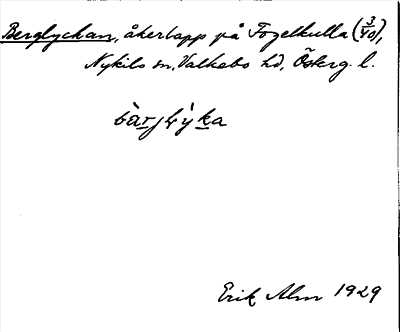 Berglyckan, åkerlapp på Fogelkulla (3/40),
Nykils sn, Valkebo hd, Österg. l.
Erik Alm 1929